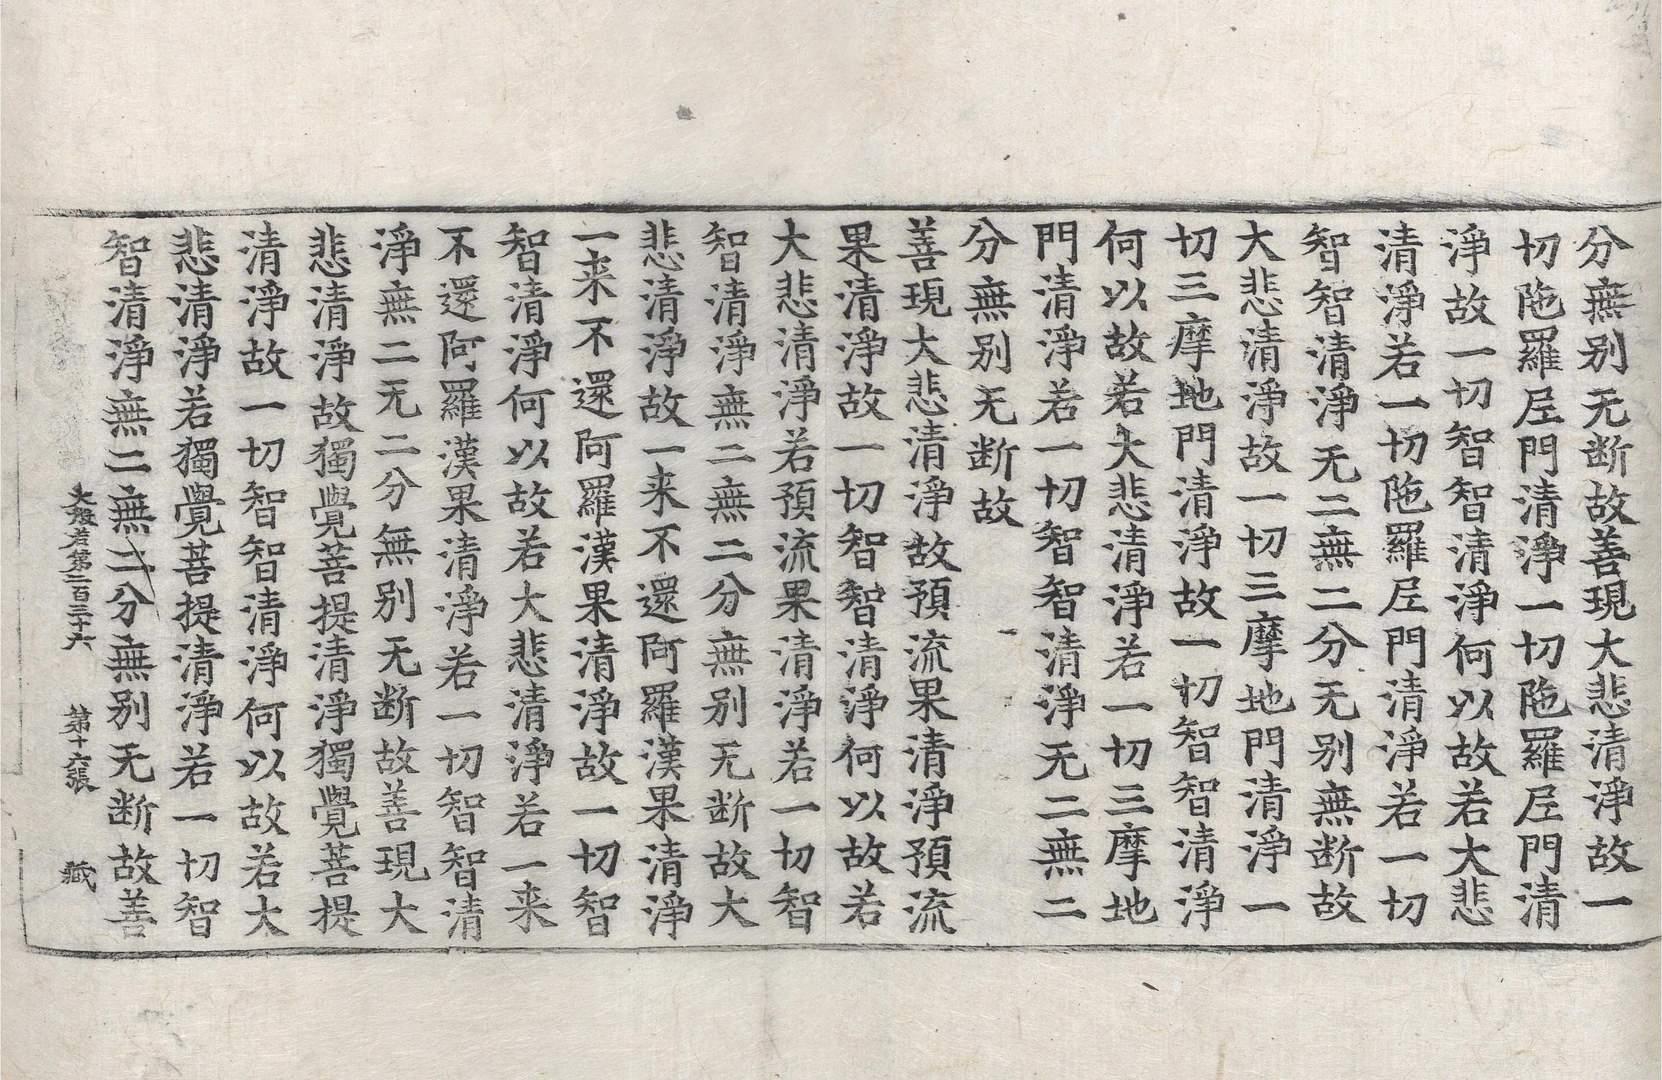 分無别无断故善現大悲清淨故一
切陁羅尼門清淨一切陁羅尼門清
淨故一切智智清淨何以故若大悲
清淨若一切陁羅尼門清淨若一切
智智清淨无二無二分无别無断故
大悲清淨故一切三摩地門清淨一
切三摩地門清淨故一切智智清淨
何以故若大悲清淨若一切三摩地
門清淨若一切智智清淨无二無二
分無别无断故
善現大悲清淨故預流果清淨預流
果清淨故一切智智清淨何以故若
大悲清淨若預流果清淨若一切智
智清淨無二無二分無别无断故大
悲清淨故一来不還阿羅漢果清淨
一来不還阿羅漢果清淨故一切智
智清淨何以故若大悲清淨若一来
不還阿羅漢果清淨若一切智智清
淨無二无二分無别无断故善現大
悲清淨故獨覺菩提清淨獨覺菩提
清淨故一切智智清淨何以故若大
悲清淨若獨覺菩提清淨若一切智
智清淨無二無二分無别无断故善
大般若第二百三十六 第十六張 藏